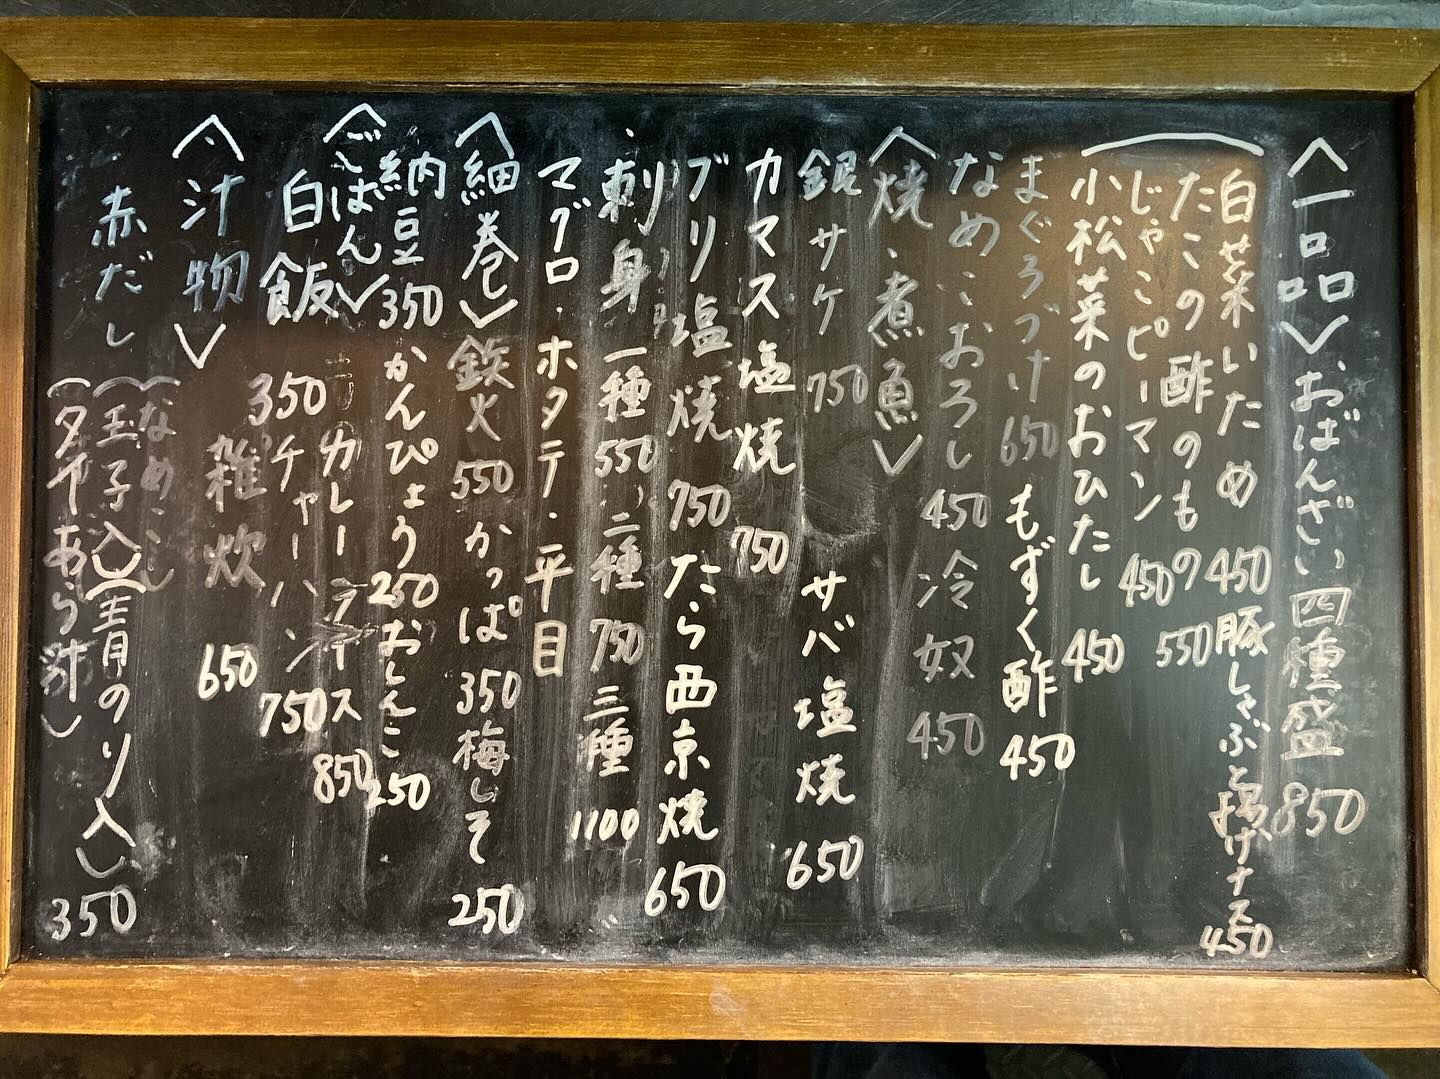 〈一品〉おばんざい四種盛 850
白菜いため 450 豚しゃぶと揚げナス 450
たこの酢のもの 550
じゃこピーマン 450
小松菜のおひたし 450
まぐろづけ 650 もずく酢 450
なめこおろし 450 冷奴 450
〈焼・煮魚〉
銀サケ 750 サバ塩焼 650
カマス塩焼 750
ブリ塩焼 750 たら西京焼 650
刺身 一種 550 二種 750 三種 1100
マグロ・ホタテ・平目
〈細巻〉鉄火 550 かっぱ 350 梅しそ 250
納豆 350 かんぴょう 250 おしんこ 250
〈ごはん〉カレーライス 850
白飯 350 チャーハン 750
雑炊 650
〈汁物〉
赤だし (なめこ)
(玉子入)(青のり入)
(タイあら汁) 350